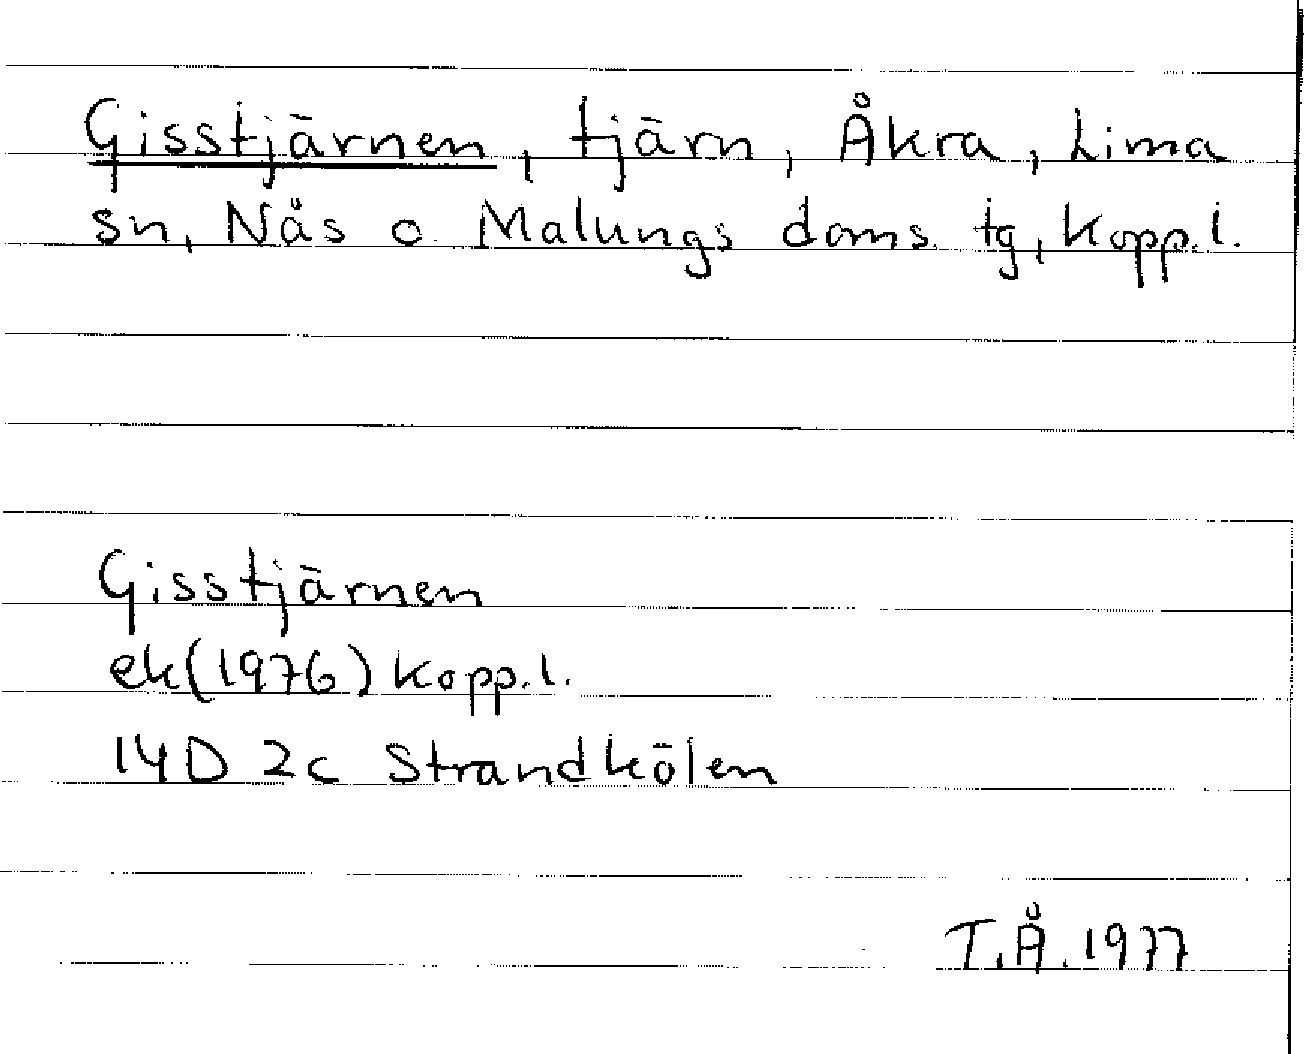 Gisstjärnen, tjärn, Åkra, Lima
sn, Nås o Malungs doms. tg, Kopp.l.
Gisstjärnen
ek(1976) Kopp.l.
14D 2c Strandkölen
T.Å.1977